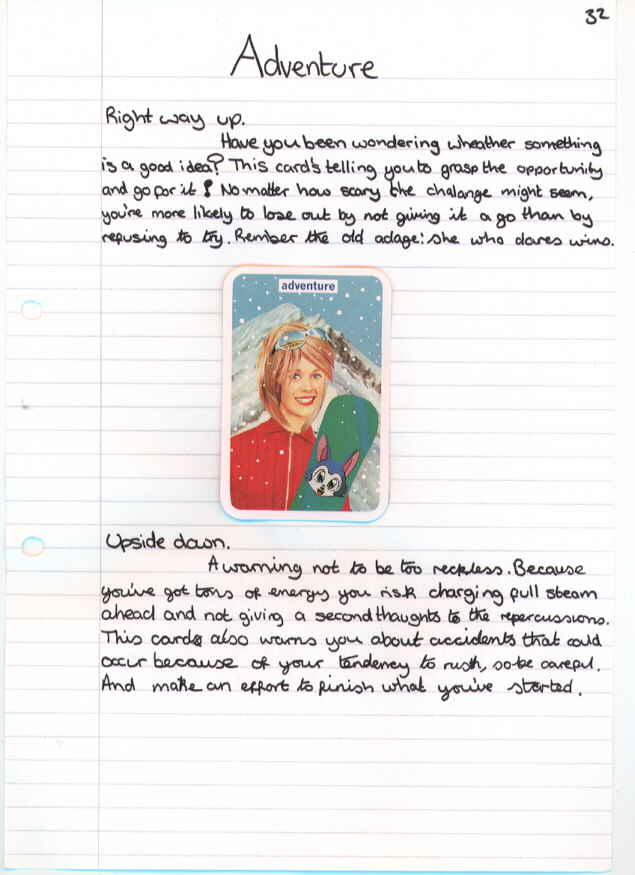 32
Adventure
Right way up.
Have you been wondering wheather something
is a good idea? This card's telling you to grasp the opportunity
and go for it! No matter how scary the chalange might seem,
you're more likely to lose out by not giving it a go than by
refusing to try. Rember the old adage: she who dares wins.
adventure
Upside down.
A warning not to be too reckless. Because
you've got tons of energy you risk charging full steam
ahead and not giving a second thoughts to the repercussions.
This card also warns you about accidents that could
occur because of your tendency to rush, so be careful.
And make an effort to finish what you've started.